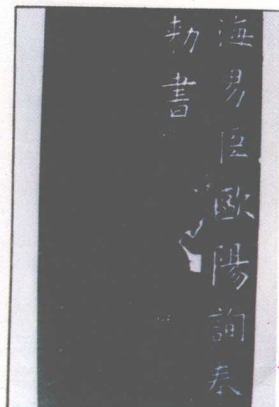 海男臣歐陽詢奉
勑書